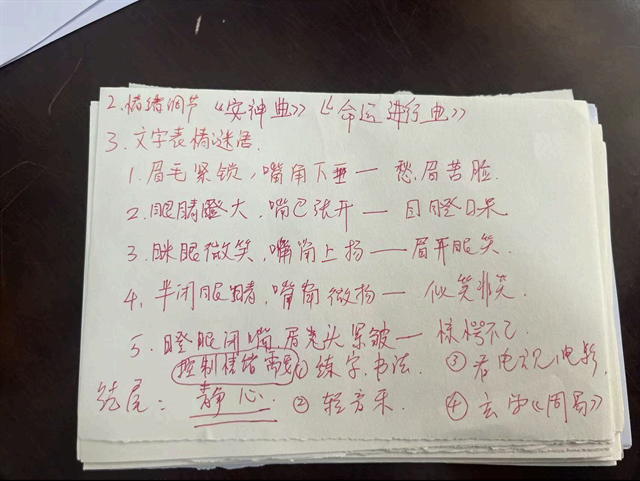 2.情绪调节《安神曲》《命运进行曲》
3.文字表情谜语.
1.眉毛紧锁,嘴角下垂一愁眉苦脸.
2.眼睛瞪大,嘴巴张开一目瞪口呆
3.眯眼微笑,嘴角上扬——眉开眼笑.
4.半闭眼睛,嘴角微扬—似笑非笑.
5.瞪眼闭嘴,眉头紧皱—惊愕不已
控制情绪需要①练字.书法. ③看电视、电影.
结尾:静心.②轻音乐. ④玄学《周易》